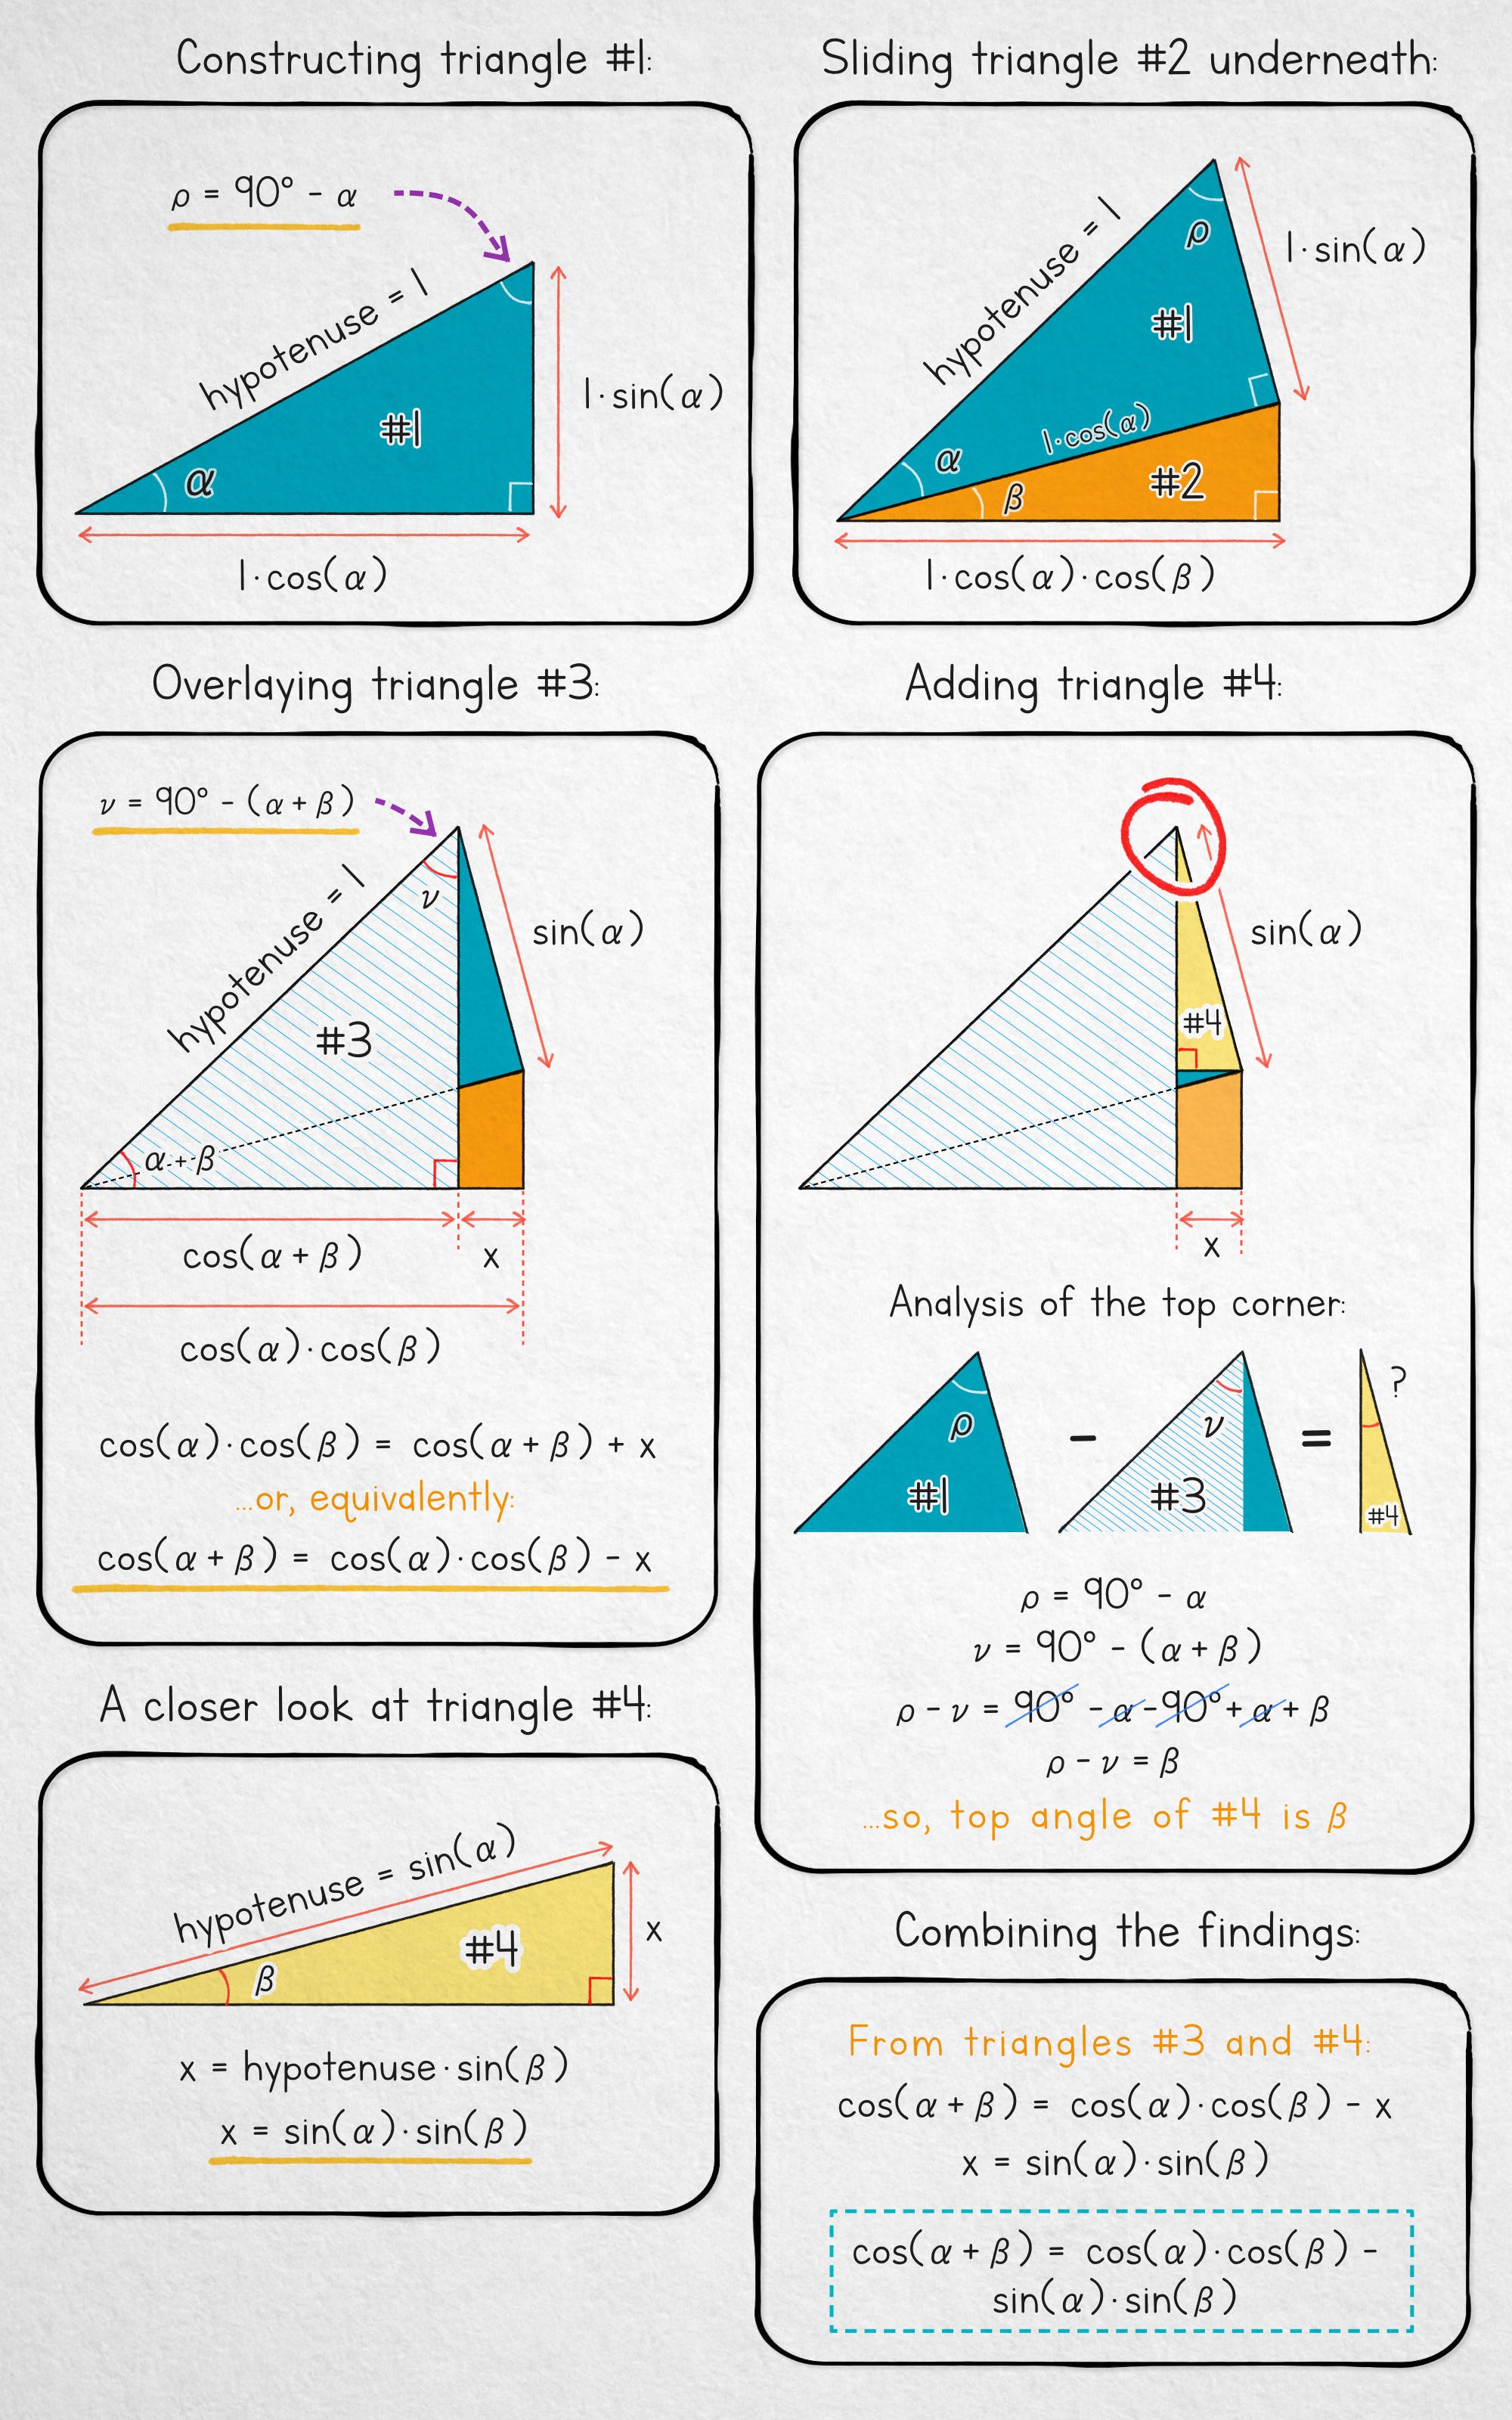 Constructing triangle #1:
ρ = 90° - α
hypotenuse = 1
1·sin(α)
#1
α
1·cos(α)
Sliding triangle #2 underneath:
hypotenuse = 1
ρ
1·sin(α)
#1
1·cos(α)
α
β
#2
1·cos(α)·cos(β)
Overlaying triangle #3:
ν = 90° - (α + β)
hypotenuse = 1
ν
sin(α)
#3
α + β
cos(α + β)
x
cos(α)·cos(β)
cos(α)·cos(β) = cos(α + β) + x
...or, equivalently:
cos(α + β) = cos(α)·cos(β) - x
Adding triangle #4:
sin(α)
#4
x
Analysis of the top corner:
ρ
#1
-
ν
#3
=
?
#4
ρ = 90° - α
ν = 90° - (α + β)
ρ - ν = 90° - α - 90° + α + β
ρ - ν = β
...so, top angle of #4 is β
A closer look at triangle #4:
hypotenuse = sin(α)
β
#4
x
x = hypotenuse·sin(β)
x = sin(α)·sin(β)
Combining the findings:
From triangles #3 and #4:
cos(α + β) = cos(α)·cos(β) - x
x = sin(α)·sin(β)
cos(α + β) = cos(α)·cos(β) -
sin(α)·sin(β)